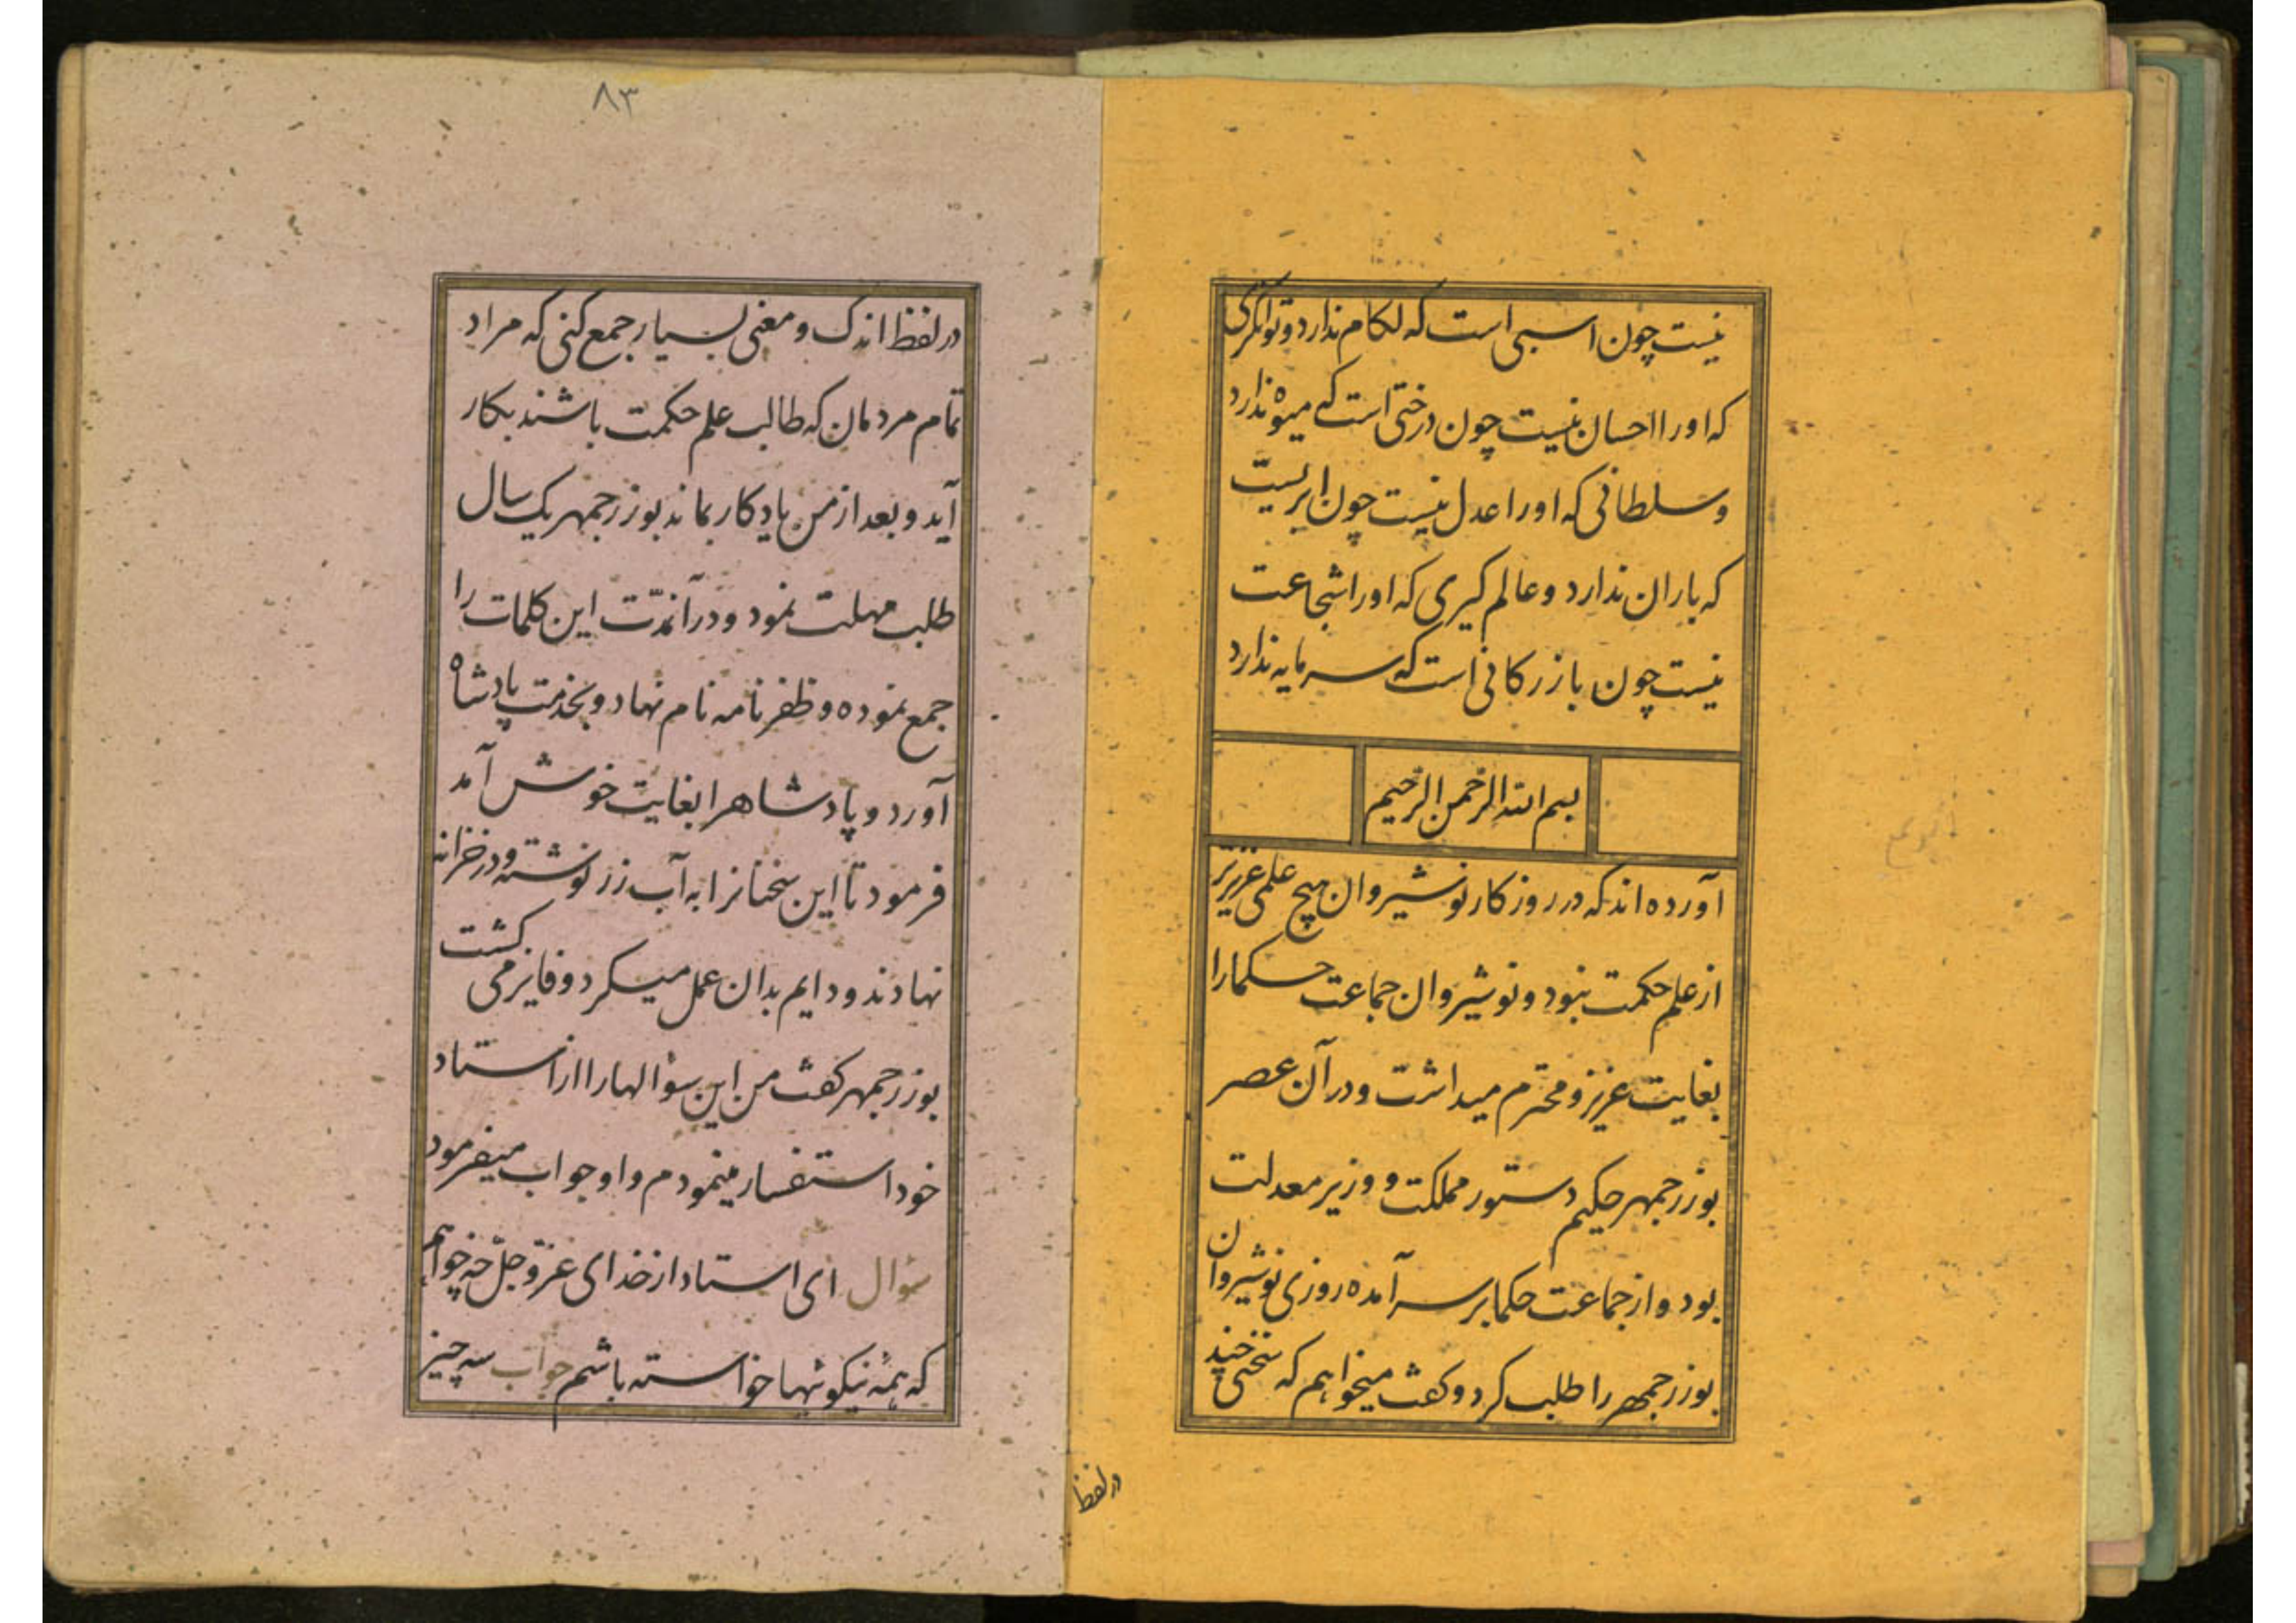 نیست چون اسبی است که لکام ندارد و توانکری
که اورا احسان نیست چون درختی است که میوه ندارد
و سلطانی که اورا عدل نیست چون ابریست
که باران ندارد و عالم کیری که اورا شجاعت
نیست چون بازرکانی است که سرمایه ندارد
بسم الله الرحمن الرحیم
آورده اند که در روزکار نوشیروان هیچ علمی عزیزتر
از علم حکمت نبود و نوشیروان جماعت حکمارا
بغایت عزیز و محترم میداشت و در آن عصر
بوزرجمهر حکیم دستور مملکت و وزیر معدلت
بود و از جماعت حکما بر سر آمده روزی نوشیروان
بوزرجمهر را طلب کرد و کفت میخواهم که سخنی چند
در لفظ
۸۳
در لفظ اندک و معنی بسیار جمع کنی که مراد
تمام مردمان که طالب علم حکمت باشند بکار
آید و بعد از من یادکار بماند بوزرجمهر یک سال
طلب مهلت نمود و در آنمدّت این کلمات را
جمع نموده و ظفر نامه نام نهاد و بخدمت پادشاه
آورد و پادشاهرا بغایت خوش آمد
فرمود تا این سخنانرا به آب زر نوشته و در خزانه
نهادند و دایم بدان عمل میکرد و فایز می کشت
بوزرجمهر کفت من این سؤالهارا از استاد
خود استفسار مینمودم و او جواب میفرمود
سؤال ای استاد از خدای عزّ و جلّ چه خواهم
که همه نیکوئیها خواسته باشم جواب سه چیز